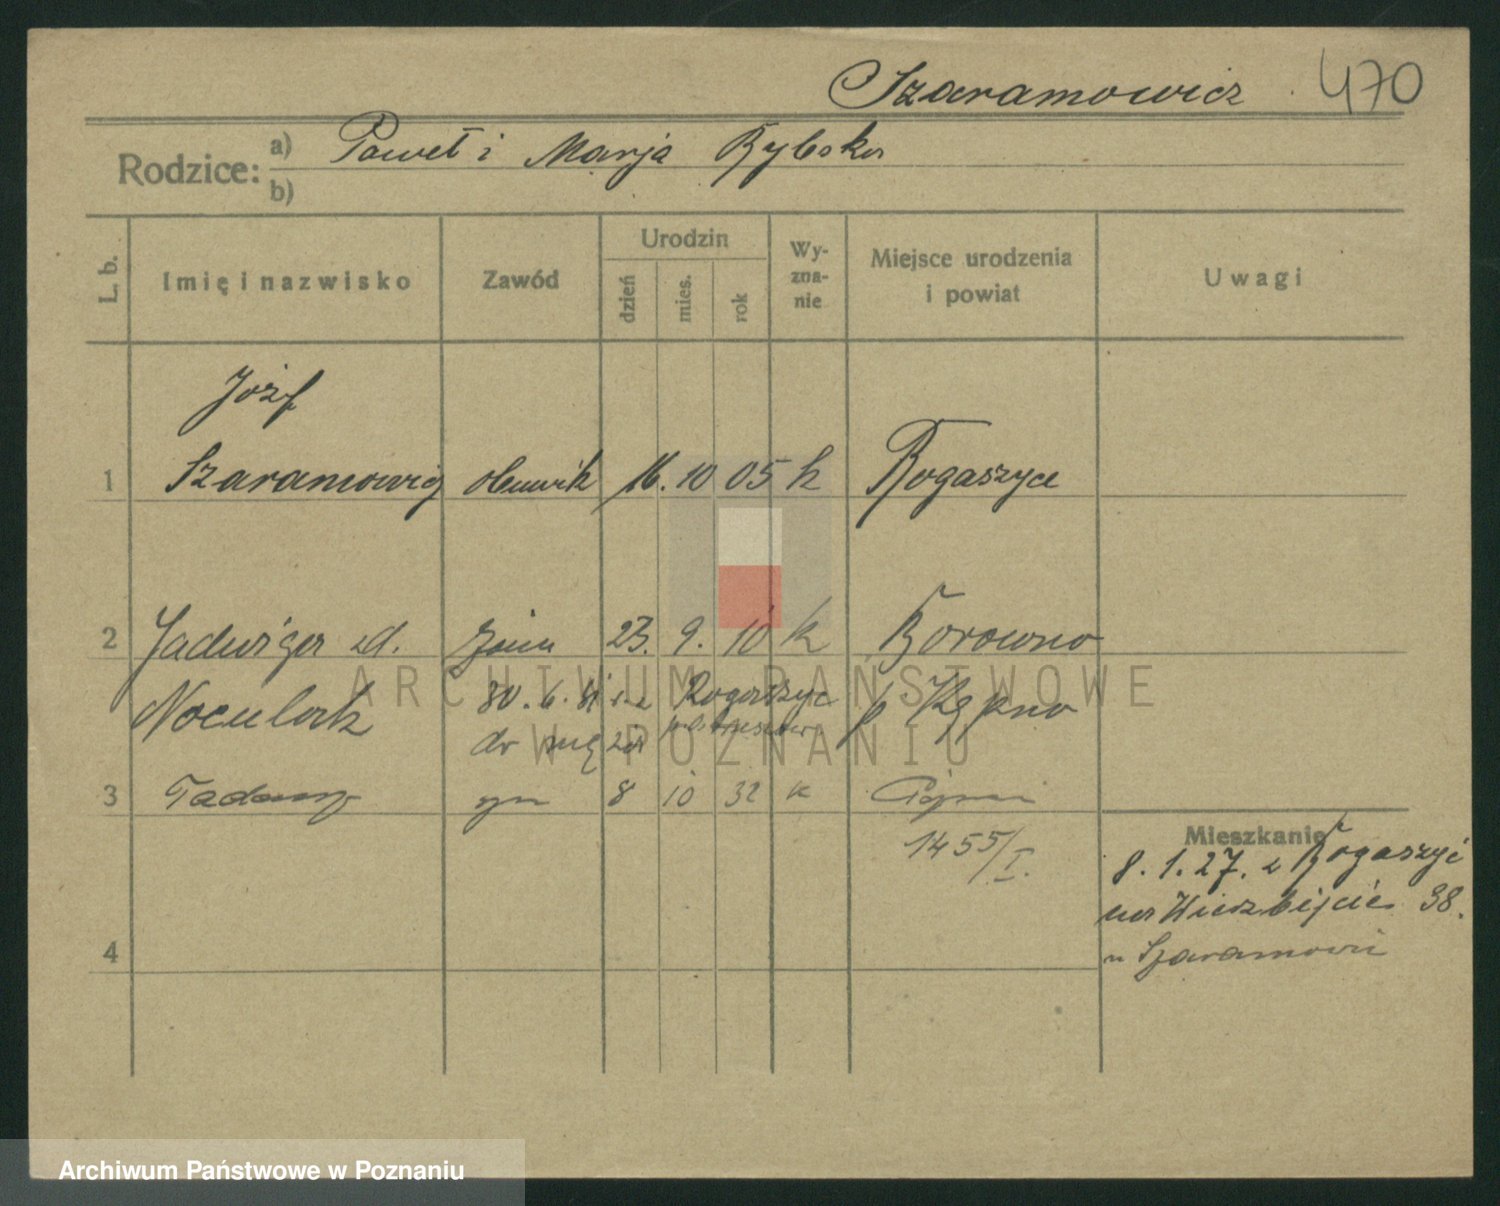 Szaramowicz 470
Rodzice: a) Paweł i Marja Rybska
b)
L. b. Imię i nazwisko Zawód Urodzin dzień mies. rok Wy-zna-nie Miejsce urodzenia i powiat Uwagi
Józf
1 Szaramowicz obuwik 16. 10 05 k Rogaszyce
2 Jadwiga zd. żona 23. 9. 10 k Borowno
Noculak 30. 6. 31 z Rogaszyc p Kępno
do męża
3 Tadeusz syn 8 10 32 k
1455/I.
Mieszkanie
8. 1. 27. z Rogaszyc
na Wierzbięcice 38.
u Szaramowicz
4
ARCHIWUM PAŃSTWOWE
W POZNANIU
Archiwum Państwowe w Poznaniu